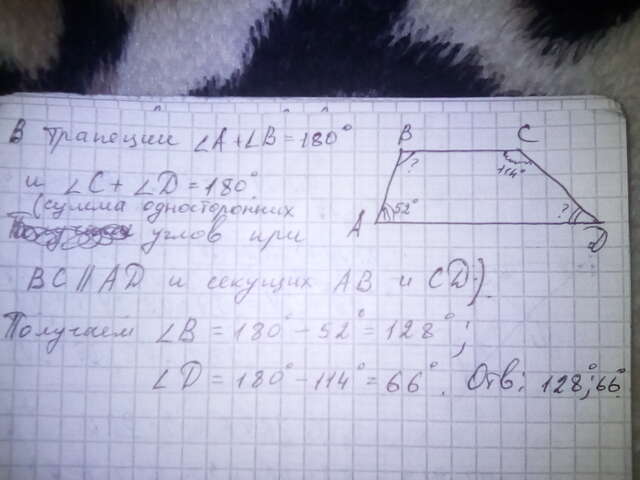 В трапеции ∠A+∠B=180°
и ∠C+∠D=180°
(сумма односторонних
углов при
BC∥AD и секущих AB и CD).
Получаем ∠B=180°-52°=128°;
∠D=180°-114°=66°. Отв: 128°;66°
B C
? 114°
A 52° ? D